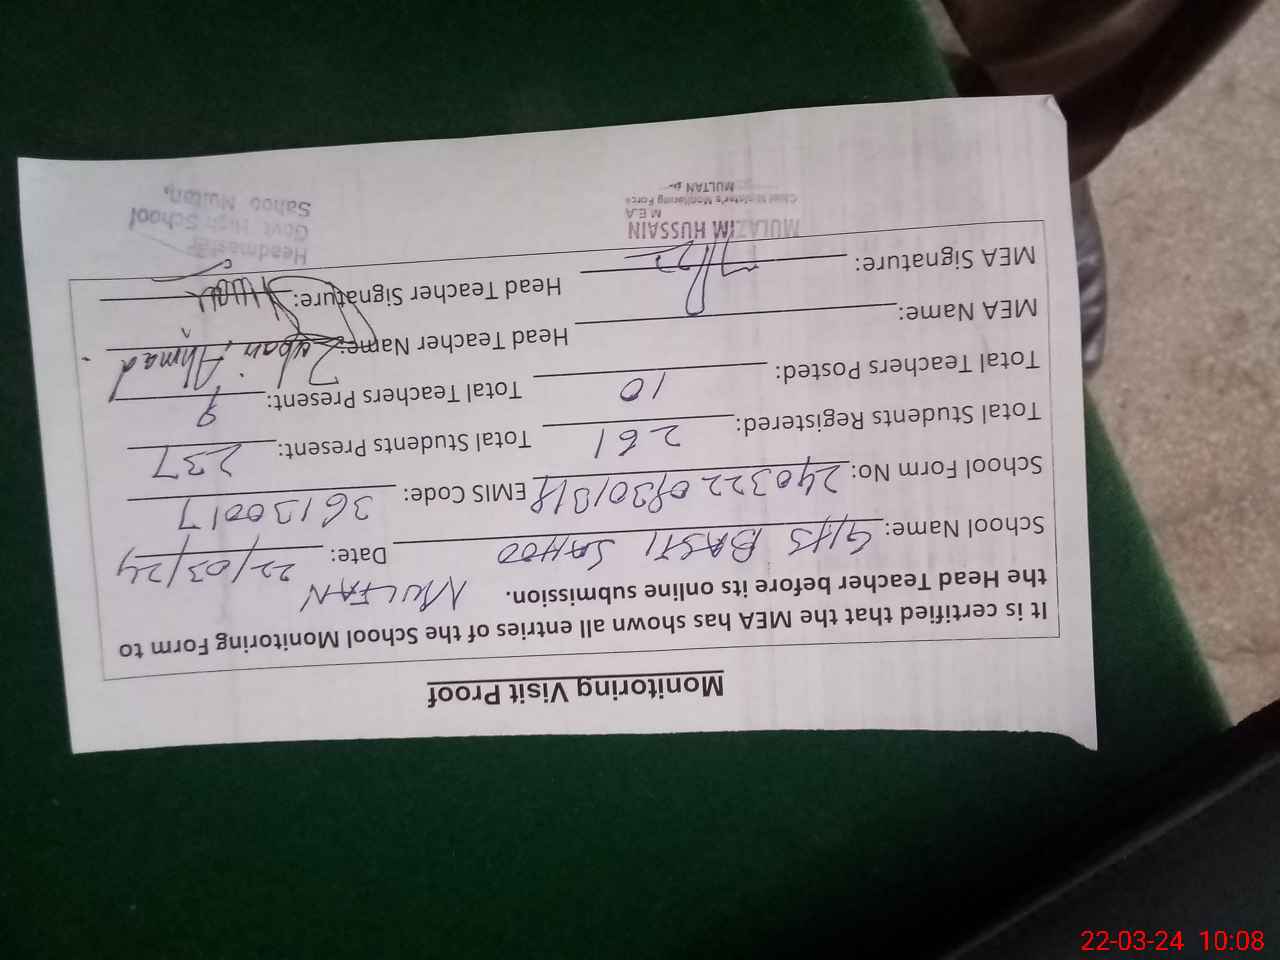 Monitoring Visit Proof
It is certified that the MEA has shown all entries of the School Monitoring Form to
the Head Teacher before its online submission. MULTAN
School Name: GHS BASTI SAHOO Date: 22/03/24
School Form No: EMIS Code: 36130017
Total Students Registered: 261 Total Students Present: 237
Total Teachers Posted: 10 Total Teachers Present: 9
MEA Name: Head Teacher Name: Ahmad
MEA Signature: Head Teacher Signature:
MULAZIM HUSSAIN
M.E.A
Chief Minister's Monitoring Force
MULTAN
Headmaster
Govt. High School
Sahoo Multan.
22-03-24 10:08